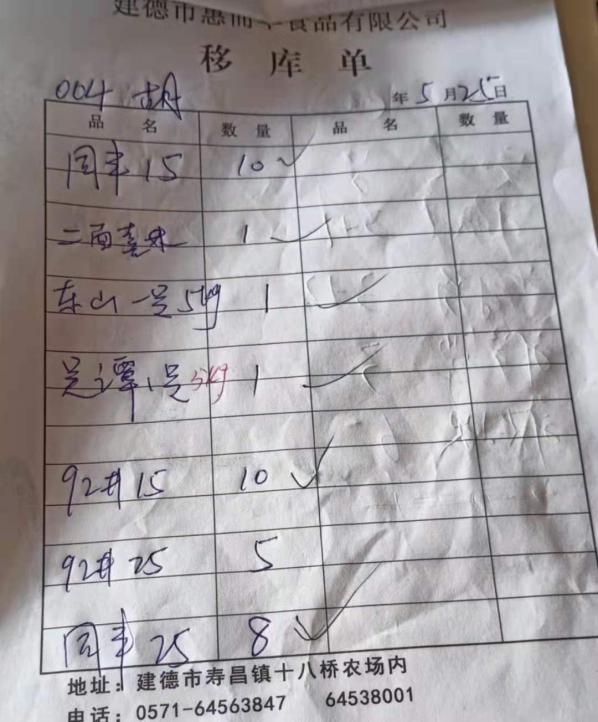 建德市惠而丰食品有限公司
移 库 单
004 胡 年 5 月 25 日
品 名 数 量 品 名 数 量
同丰 15 10
二面香米 1
东山一号 5kg 1
吴潭1号 5kg 1
92井 15 10
92井 25 5
同丰 25 8
地址: 建德市寿昌镇十八桥农场内
电话: 0571-64563847 64538001